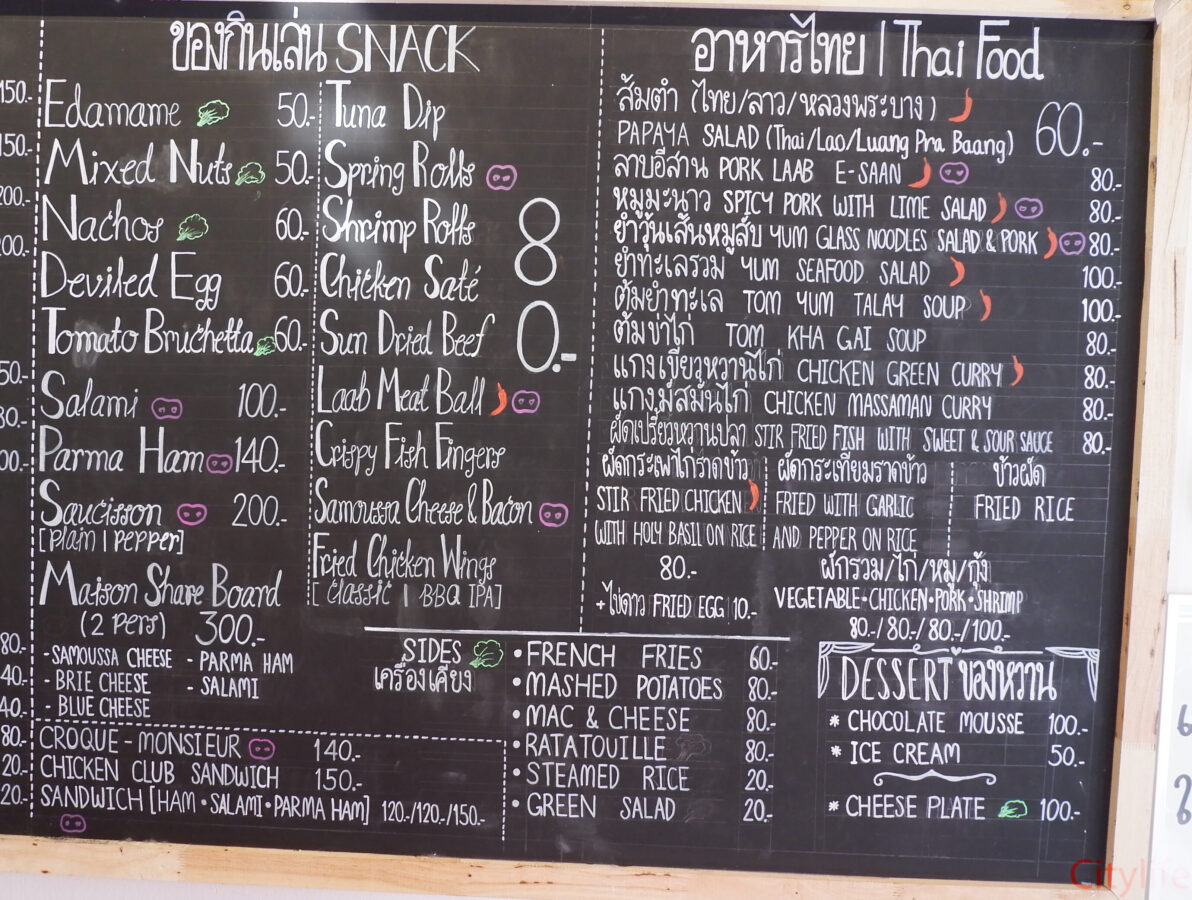 ของกินเล่น SNACK
Edamame 50.-
Mixed Nuts 50.-
Nachos 60.-
Deviled Egg 60.-
Tomato Bruchetta 60.-
Salami 100.-
Parma Ham 140.-
Saucisson 200.-
[Plain | Pepper]
Maison Share Board
(2 Pers) 300.-
-SAMOUSSA CHEESE - PARMA HAM
- BRIE CHEESE - SALAMI
- BLUE CHEESE
Tuna Dip
Spring Rolls
Shrimp Rolls
Chicken Saté
Sun Dried Beef
80.-
Laab Meat Ball
Crispy Fish Fingers
Samoussa Cheese & Bacon
Fried Chicken Wings
[Classic | BBQ IPA]
CROQUE-MONSIEUR 140.-
CHICKEN CLUB SANDWICH 150.-
SANDWICH [HAM • SALAMI • PARMA HAM] 120./120./150.-
อาหารไทย | Thai Food
ส้มตำ (ไทย/ลาว/หลวงพระบาง)
PAPAYA SALAD (Thai/Lao/Luang Pra Baang) 60.-
ลาบอีสาน PORK LAAB E-SAAN 80.-
หมูมะนาว SPICY PORK WITH LIME SALAD 80.-
ยำวุ้นเส้นหมูสับ YUM GLASS NOODLES SALAD & PORK 80.-
ยำทะเลรวม YUM SEAFOOD SALAD 100.-
ต้มยำทะเล TOM YUM TALAY SOUP 100.-
ต้มข่าไก่ TOM KHA GAI SOUP 80.-
แกงเขียวหวานไก่ CHICKEN GREEN CURRY 80.-
แกงมัสมั่นไก่ CHICKEN MASSAMAN CURRY 80.-
ผัดเปรี้ยวหวานปลา STIR FRIED FISH WITH SWEET & SOUR SAUCE 80.-
ผัดกระเพาไก่ราดข้าว
STIR FRIED CHICKEN
WITH HOLY BASIL ON RICE
80.-
+ไข่ดาว FRIED EGG 10.-
ผัดกระเทียมราดข้าว
FRIED WITH GARLIC
AND PEPPER ON RICE
ข้าวผัด
FRIED RICE
ผักรวม/ไก่/หมู/กุ้ง
VEGETABLE•CHICKEN•PORK•SHRIMP
80.-/80.-/80.-/100.-
SIDES
เครื่องเคียง
• FRENCH FRIES 60.-
• MASHED POTATOES 80.-
• MAC & CHEESE 80.-
• RATATOUILLE 80.-
• STEAMED RICE 20.-
• GREEN SALAD 20.-
DESSERT ของหวาน
* CHOCOLATE MOUSSE 100.-
* ICE CREAM 50.-
* CHEESE PLATE 100.-
Citylife